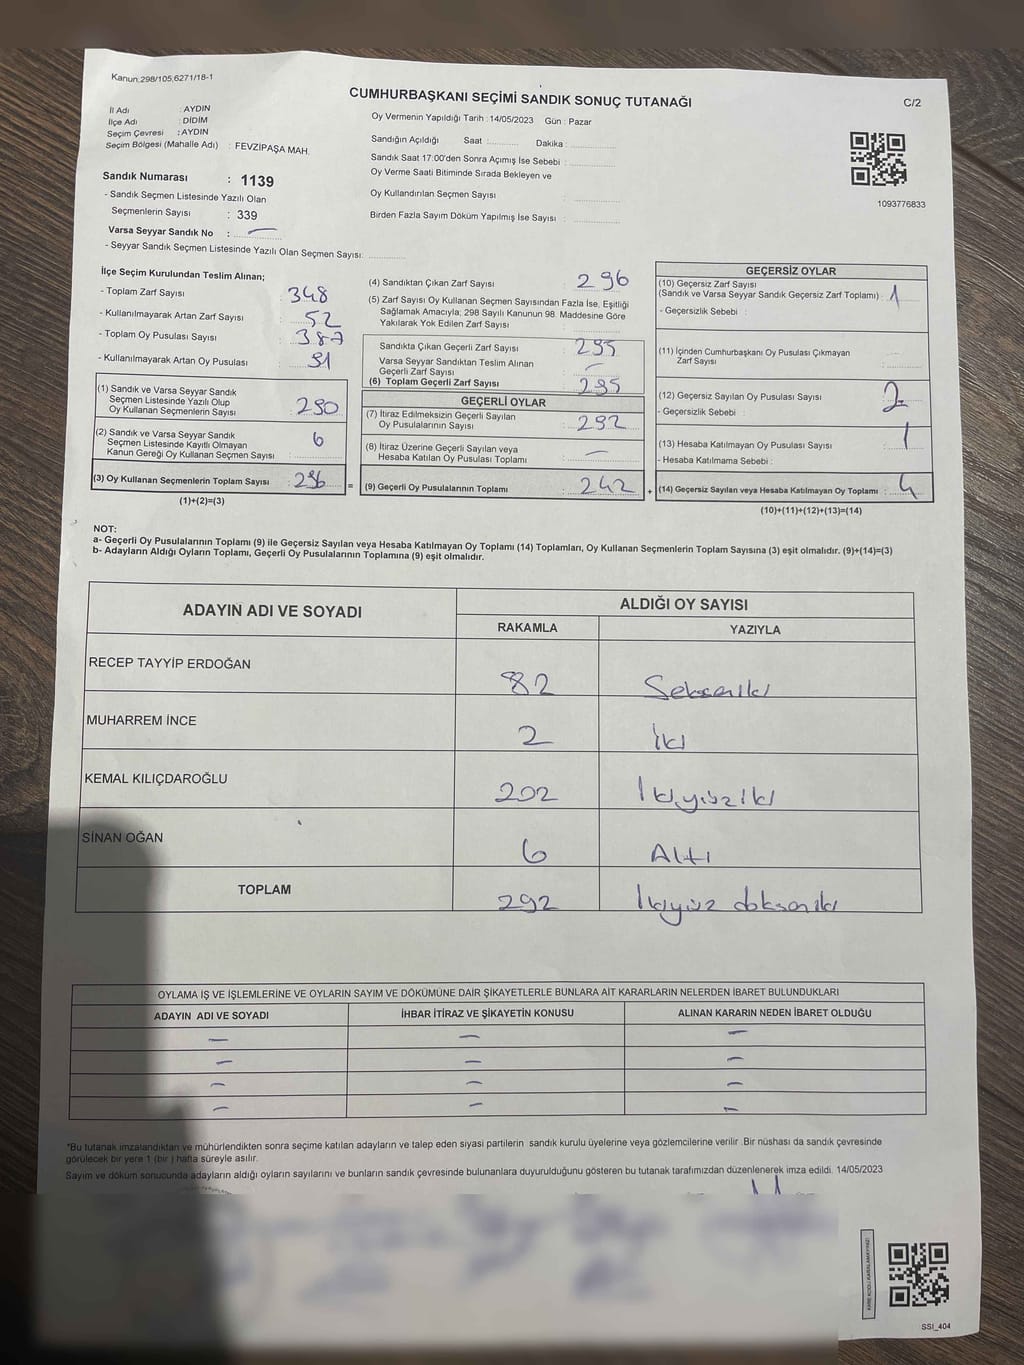 Kanun.298/105,6271/18-1
CUMHURBAŞKANI SEÇİMİ SANDIK SONUÇ TUTANAĞI
C/2
İl Adı : AYDIN
İlçe Adı : DİDİM
Seçim Çevresi : AYDIN
Seçim Bölgesi (Mahalle Adı) : FEVZİPAŞA MAH.
Oy Vermenin Yapıldığı Tarih : 14/05/2023 Gün : Pazar
Sandığın Açıldığı Saat : Dakika :
Sandık Saat 17:00'den Sonra Açımış İse Sebebi :
Oy Verme Saati Bitiminde Sırada Bekleyen ve
Oy Kullandırılan Seçmen Sayısı :
Birden Fazla Sayım Döküm Yapılmış İse Sayısı :
1093776833
Sandık Numarası : 1139
- Sandık Seçmen Listesinde Yazılı Olan
Seçmenlerin Sayısı : 339
Varsa Seyyar Sandık No : —
- Seyyar Sandık Seçmen Listesinde Yazılı Olan Seçmen Sayısı:
İlçe Seçim Kurulundan Teslim Alınan;
- Toplam Zarf Sayısı : 348
- Kullanılmayarak Artan Zarf Sayısı : 52
- Toplam Oy Pusulası Sayısı : 387
- Kullanılmayarak Artan Oy Pusulası : 91
(1) Sandık ve Varsa Seyyar Sandık
Seçmen Listesinde Yazılı Olup
Oy Kullanan Seçmenlerin Sayısı : 290
(2) Sandık ve Varsa Seyyar Sandık
Seçmen Listesinde Kayıtlı Olmayan
Kanun Gereği Oy Kullanan Seçmen Sayısı : 6
(3) Oy Kullanan Seçmenlerin Toplam Sayısı : 296
(1)+(2)=(3)
(4) Sandıktan Çıkan Zarf Sayısı : 296
(5) Zarf Sayısı Oy Kullanan Seçmen Sayısından Fazla İse, Eşitliği
Sağlamak Amacıyla; 298 Sayılı Kanunun 98. Maddesine Göre
Yakılarak Yok Edilen Zarf Sayısı :
Sandıkta Çıkan Geçerli Zarf Sayısı : 295
Varsa Seyyar Sandıktan Teslim Alınan
Geçerli Zarf Sayısı : —
(6) Toplam Geçerli Zarf Sayısı : 295
GEÇERLİ OYLAR
(7) İtiraz Edilmeksizin Geçerli Sayılan
Oy Pusulalarının Sayısı : 292
(8) İtiraz Üzerine Geçerli Sayılan veya
Hesaba Katılan Oy Pusulası Toplamı : —
= (9) Geçerli Oy Pusulalarının Toplamı : 242 +
GEÇERSİZ OYLAR
(10) Geçersiz Zarf Sayısı
(Sandık ve Varsa Seyyar Sandık Geçersiz Zarf Toplamı) : 1
- Geçersizlik Sebebi :
(11) İçinden Cumhurbaşkanı Oy Pusulası Çıkmayan
Zarf Sayısı :
(12) Geçersiz Sayılan Oy Pusulası Sayısı : 2
- Geçersizlik Sebebi :
(13) Hesaba Katılmayan Oy Pusulası Sayısı : 1
- Hesaba Katılmama Sebebi :
(14) Geçersiz Sayılan veya Hesaba Katılmayan Oy Toplamı : 4
(10)+(11)+(12)+(13)=(14)
NOT:
a- Geçerli Oy Pusulalarının Toplamı (9) ile Geçersiz Sayılan veya Hesaba Katılmayan Oy Toplamı (14) Toplamları, Oy Kullanan Seçmenlerin Toplam Sayısına (3) eşit olmalıdır. (9)+(14)=(3)
b- Adayların Aldığı Oyların Toplamı, Geçerli Oy Pusulalarının Toplamına (9) eşit olmalıdır.
ADAYIN ADI VE SOYADI
ALDIĞI OY SAYISI
RAKAMLA YAZIYLA
RECEP TAYYİP ERDOĞAN 82 Sekseniki
MUHARREM İNCE 2 İki
KEMAL KILIÇDAROĞLU 202 İkiyüziki
SİNAN OĞAN 6 Altı
TOPLAM 292 İkiyüz doksaniki
OYLAMA İŞ VE İŞLEMLERİNE VE OYLARIN SAYIM VE DÖKÜMÜNE DAİR ŞİKAYETLERLE BUNLARA AİT KARARLARIN NELERDEN İBARET BULUNDUKLARI
ADAYIN ADI VE SOYADI İHBAR İTİRAZ VE ŞİKAYETİN KONUSU ALINAN KARARIN NEDEN İBARET OLDUĞU
— — —
— — —
— — —
— — —
"Bu tutanak imzalandıktan ve mühürlendikten sonra seçime katılan adayların ve talep eden siyasi partilerin sandık kurulu üyelerine veya gözlemcilerine verilir .Bir nüshası da sandık çevresinde
görülecek bir yere 1 (bir ) hafta süreyle asılır.
Sayım ve döküm sonucunda adayların aldığı oyların sayılarını ve bunların sandık çevresinde bulunanlara duyurulduğunu gösteren bu tutanak tarafımızdan düzenlenerek imza edildi. 14/05/2023
SSI_404